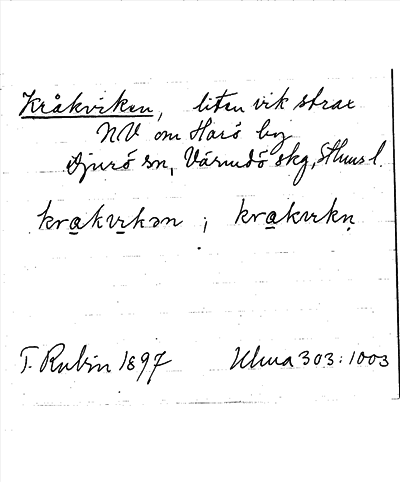 Kråkviken, liten vik strax
NV om Harö by
Djurö sn, Värmdö skg, Sthms l.
kra̲kvi̲kən ; kra̲kvikn̥
T. Rubin 1897 Ulma 303:1003